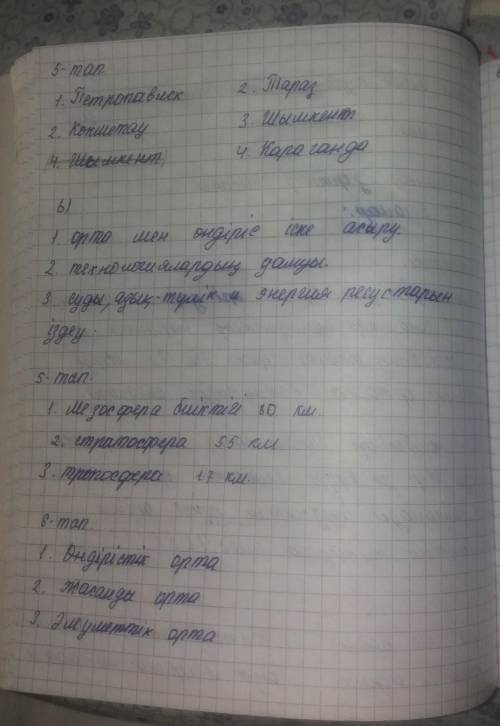 5-тап
1. Петропавлск
2. Тараз
2. Көкшетау
3. Шымкент
4. Шымкент
4. Караганда
ь)
1. орта мен өндіріс іске асыру.
2. технологиялардың дамуы.
3. суды, азық-түлік и энергия ресустарын
іздеу.
5-тап.
1. Мезосфера биіктігі 80 км.
2. стратосфера 55 км
3. тропосфера 17 км.
6-тап
1. Өндірістік орта
2. Жасанды орта
3. Әлуметтік орта